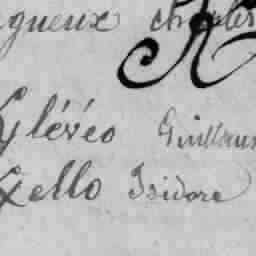 gueux Charles
Gléréo Guillau
Gello Isidore